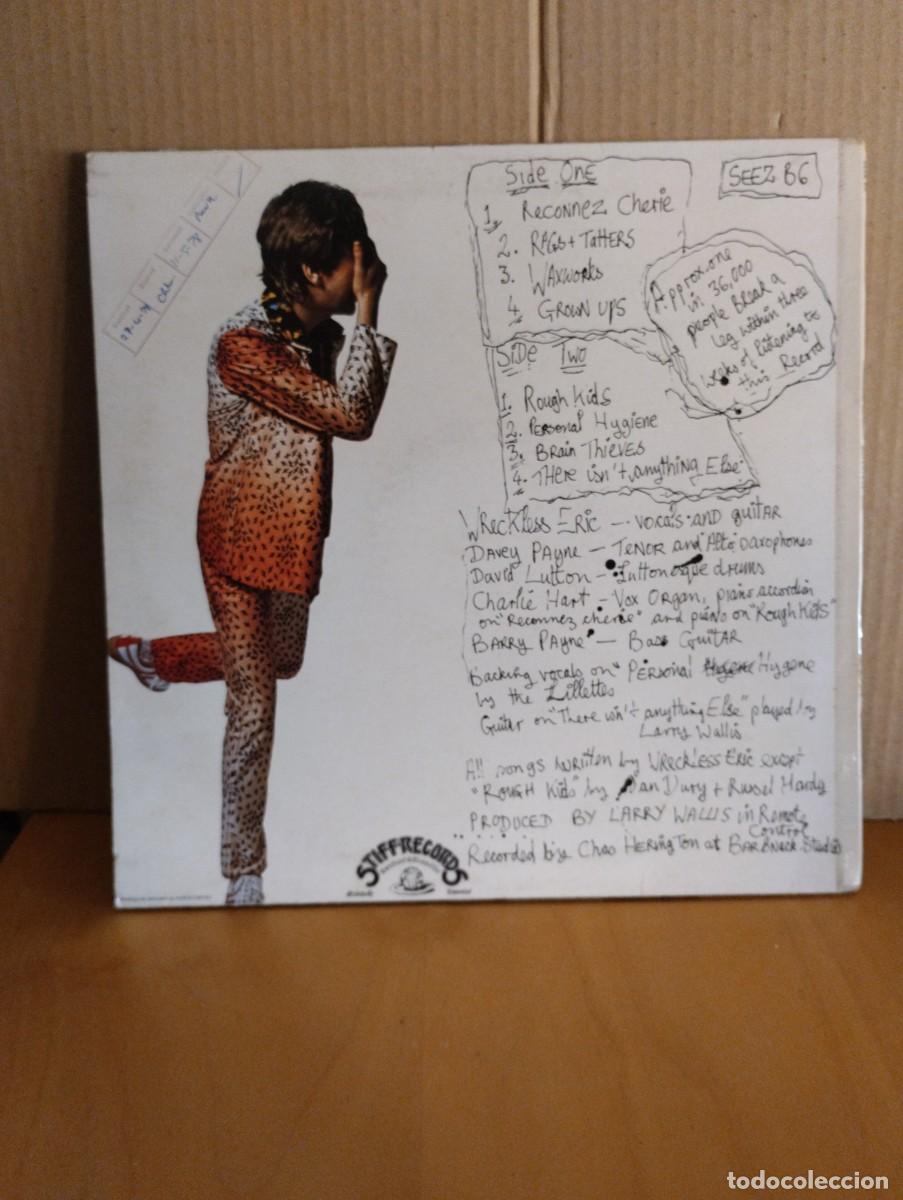 Side One
1. Reconnez Cherie
2. RAGS + TATTERS
3. WAXWORKS
4. GROWN UPS
SEEZ B6
Approx. one
in 36,000
people Break a
leg within three
weeks of listening to
this Record
SIDE Two
1. Rough Kids
2. PERSONAl Hygiene
3. BRAIN THiEVES
4. THere isn't anything Else
WRECKLESS ERIC – VOCALS AND guitar
DAVEY PAYNE – TENOR and Alto Saxophones
David Lutton – Luttonesque drums
Charlie HART – Vox Organ, piano accordion
on "Reconnez cherie" and piano on "Rough Kids"
BARRY PAYNE – Bass GuitAR
Backing vocals on "PERSONAl Hygene
by the Lillettes
Guitar on "There isn't anything Else" played by
Larry Wallis
All songs written by WRECKLESS ERIC except
"ROUGH Kids" by Ian Dury + Russel Hardy
PRODUCED BY LARRY WALLIS in Remote
Control
Recorded by Chas HERINGTON at
STIFF RECORDS
todocoleccion